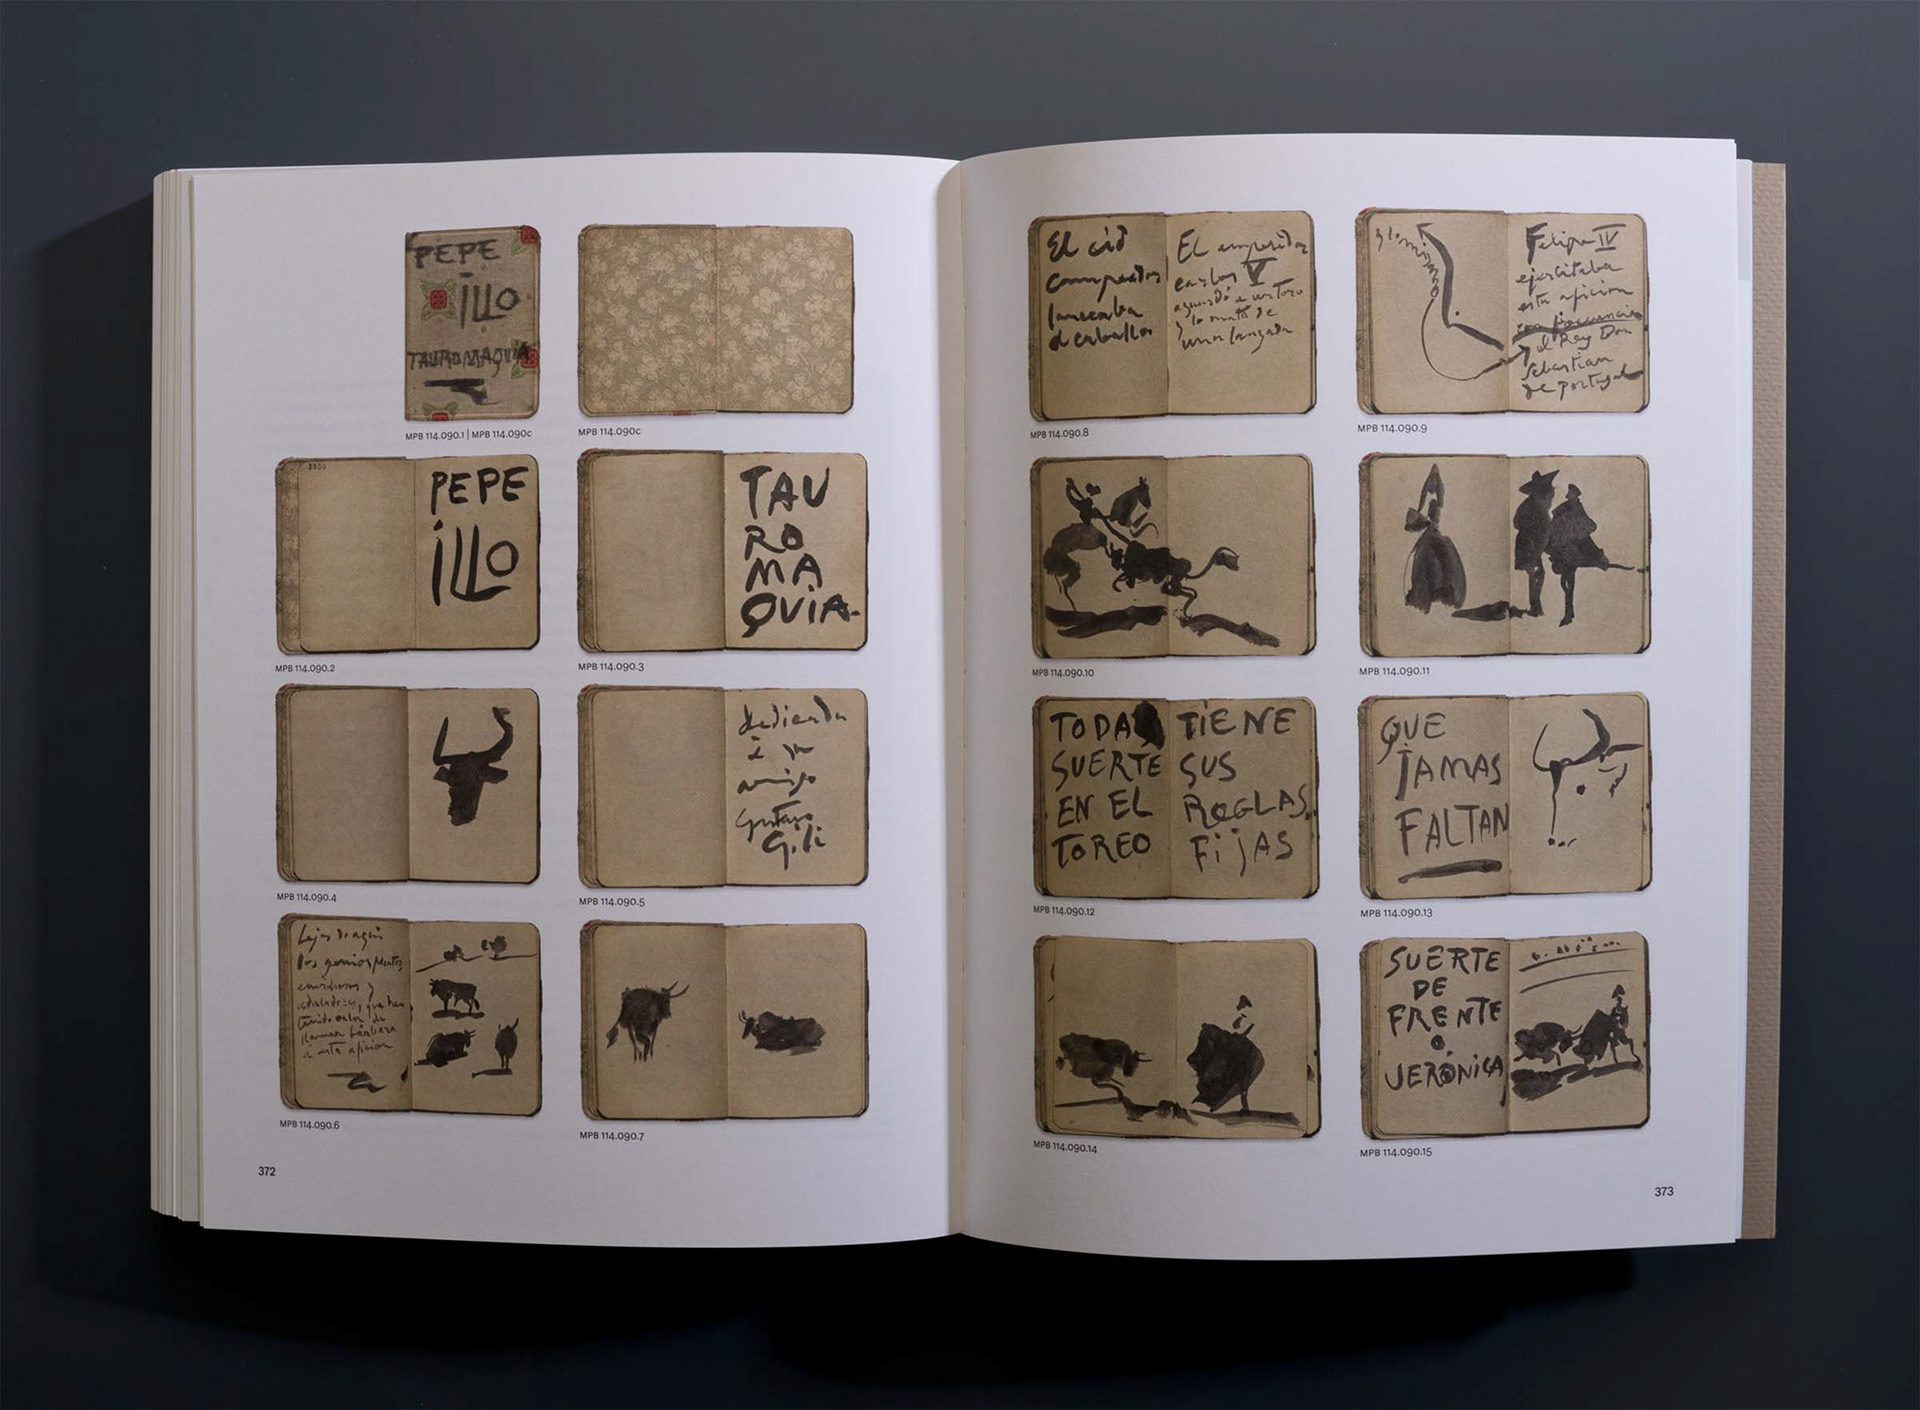 PEPE
ILLO
TAUROMAQUIA
MPB 114.090.1 | MPB 114.090c
MPB 114.090c
3830
PEPE
ILLO
MPB 114.090.2
TAU
RO
MA
QUIA.
MPB 114.090.3
MPB 114.090.4
dedicada
à su
amigo
Gustavo
Gili
MPB 114.090.5
Lejos de aquí
los genios
envidiosos y
que han
tenido valor de
llamar bárbara
a esta aficion
MPB 114.090.6
MPB 114.090.7
372
El cid
campeador
lanceaba
a caballo
El emperador
carlos V
aguardó a un toro
y lo mató de
una lanzada
MPB 114.090.8
y lo mismo
Felipe IV
ejercitaba
esta aficion
con frecuencia
el Rey Don
Sebastian
de Portugal
MPB 114.090.9
MPB 114.090.10
MPB 114.090.11
TODA
SUERTE
EN EL
TOREO
TIENE
SUS
REGLAS
FIJAS
MPB 114.090.12
QUE
JAMAS
FALTAN
MPB 114.090.13
MPB 114.090.14
SUERTE
DE
FRENTE
O
VERÓNICA
MPB 114.090.15
373